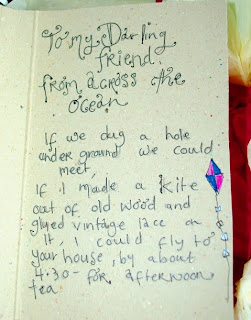 To my Darling
friend.
from across the
ocean
If we dug a hole
under ground we could
meet,
If I made a kite
out of old wood and
glued vintage lace on
it, I could fly to
your house, by about
4:30 - for afternoon
tea.